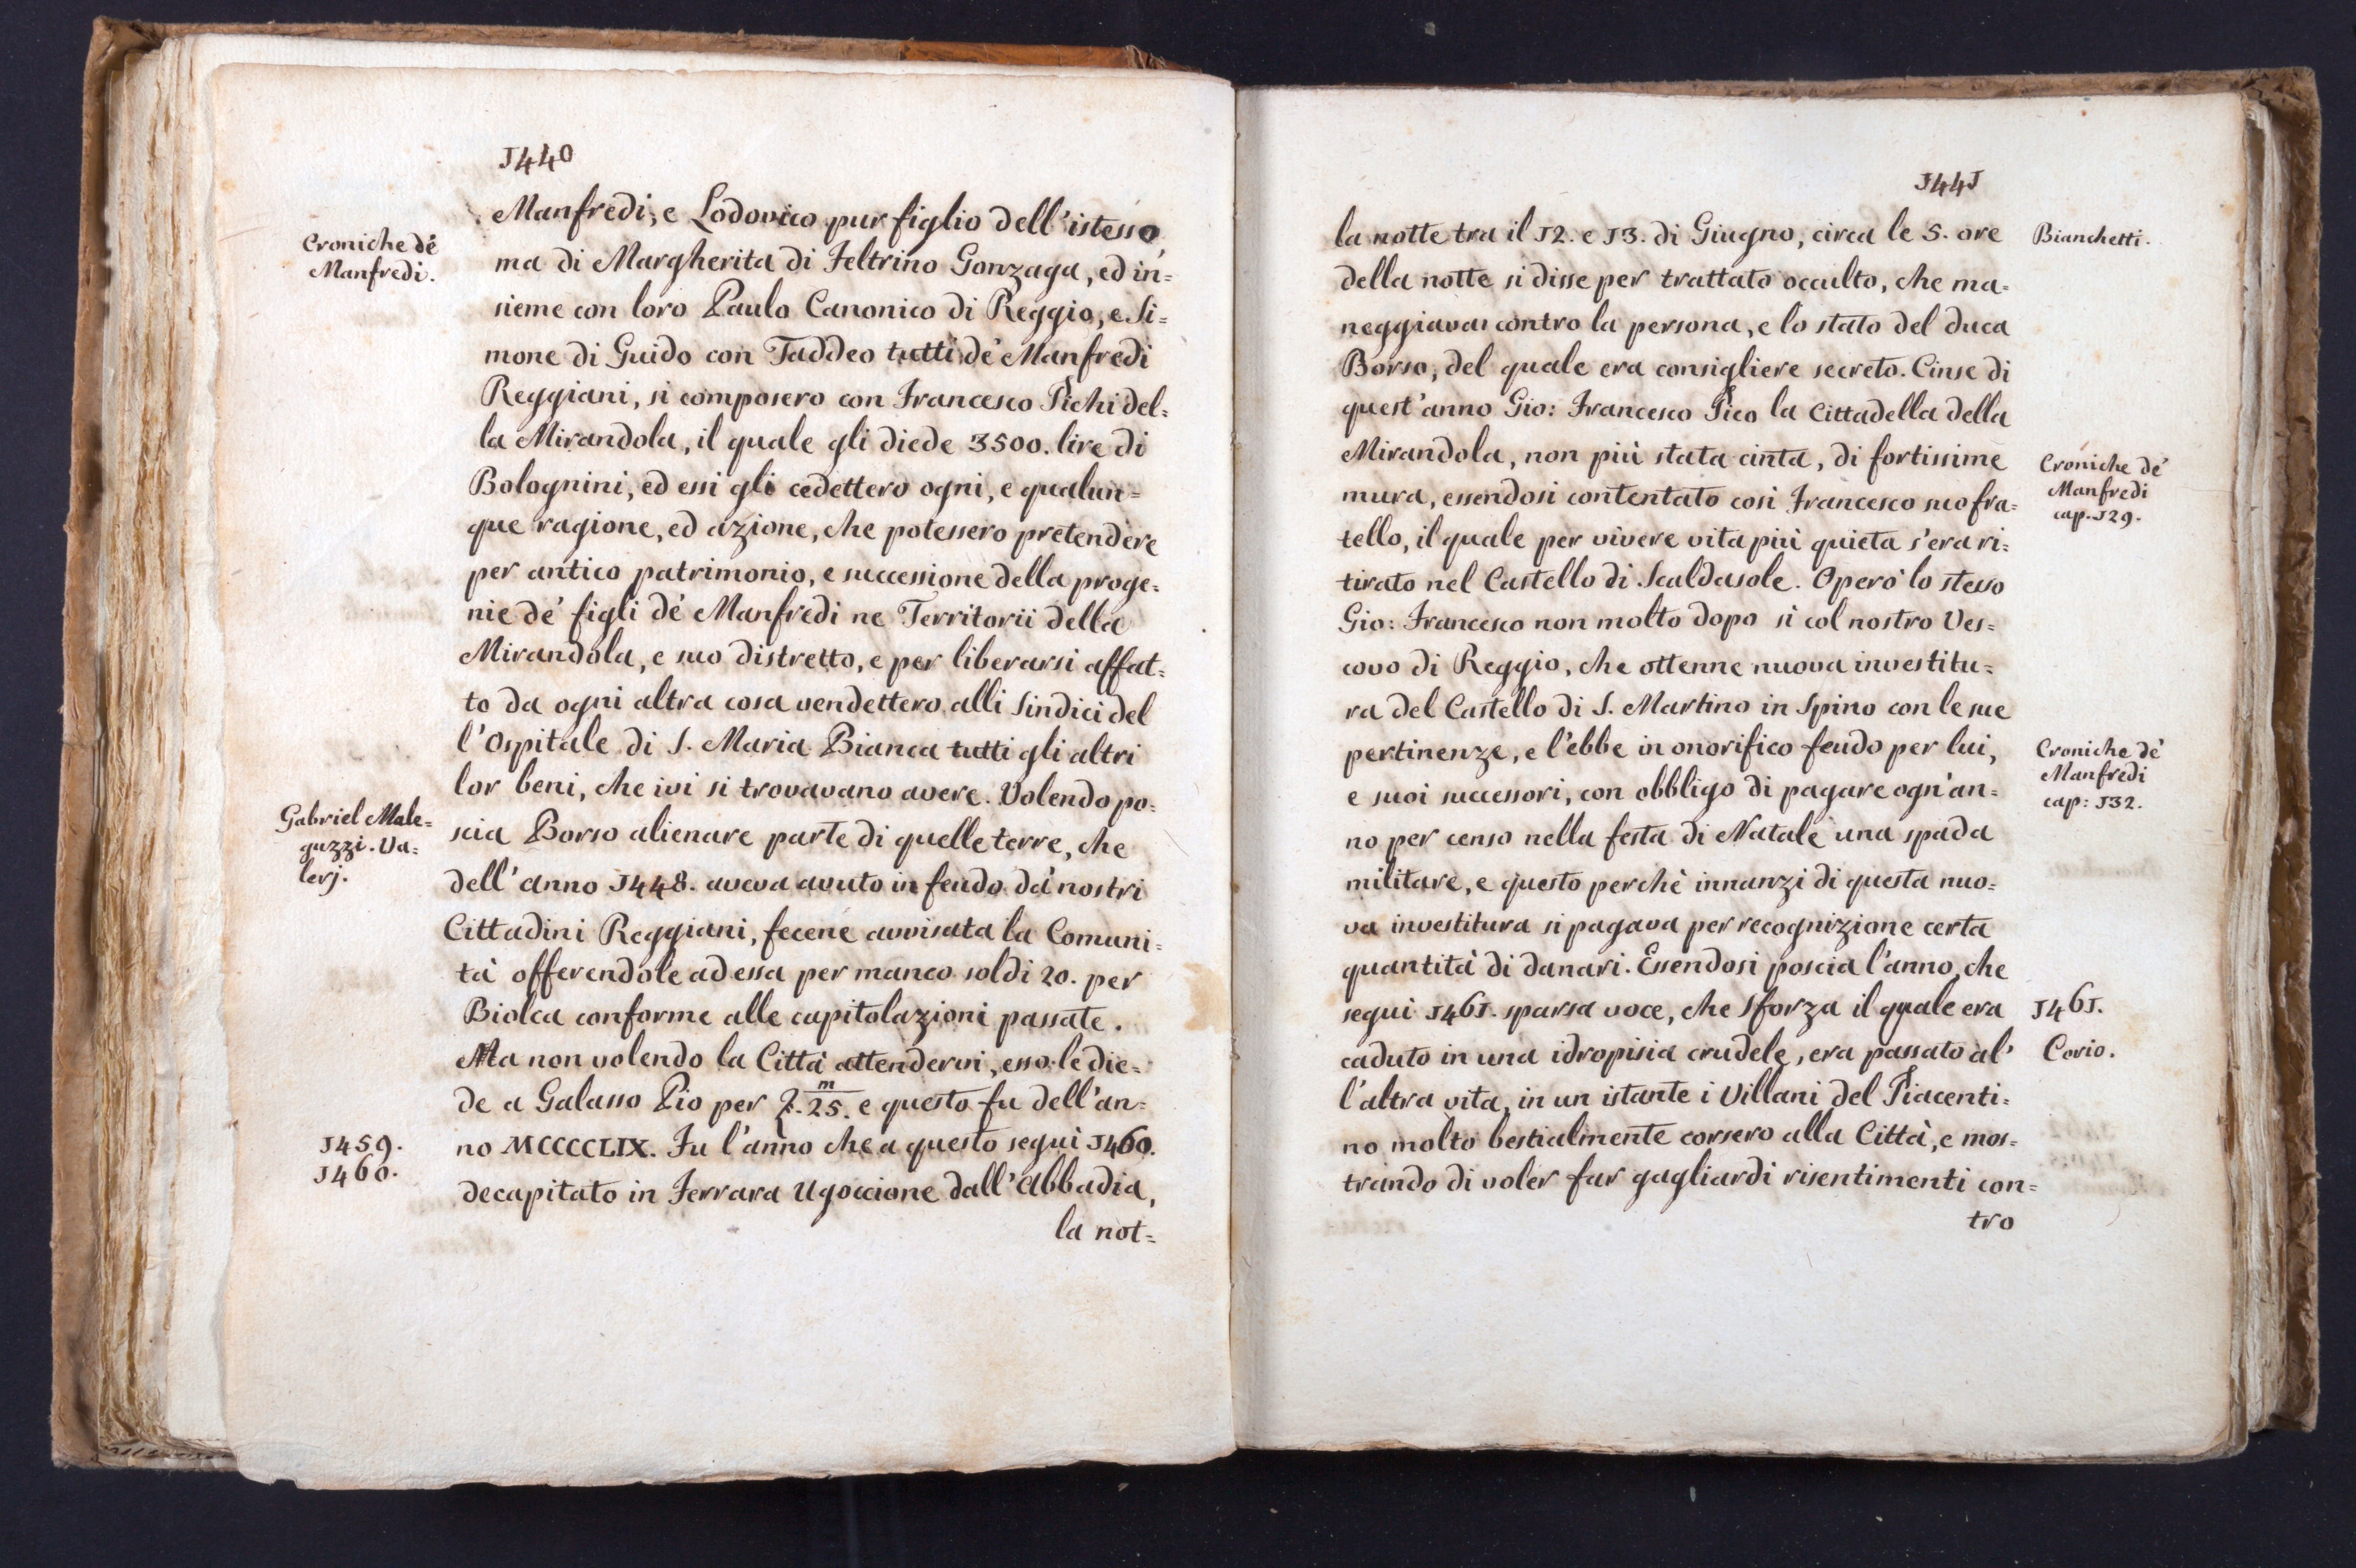 1440
Croniche de'
Manfredi.
Manfredi, e Lodovico pur figlio dell'istesso,
ma di Margherita di Feltrino Gonzaga, ed in=
sieme con loro Paulo Canonico di Reggio, e Si=
mone di Guido con Taddeo tutti de' Manfredi
Reggiani, si composero con Francesco Pichi del=
la Mirandola, il quale gli diede 3500. lire di
Bolognini, ed essi gli cedettero ogni, e qualun=
que ragione, ed azione, che potessero pretendere
per antico patrimonio, e successione della proge=
nie de' figli de' Manfredi ne Territorii della
Mirandola, e suo distretto, e per liberarsi affat=
to da ogni altra cosa vendettero alli Sindici del
l'Ospitale di S. Maria Bianca tutti gli altri
lor beni, che ivi si trovavano avere. Volendo po=
Gabriel Male=
guzzi. Va=
lerj.
scia Borso alienare parte di quelle terre, che
dell'anno 1448. aveva avuto in feudo da' nostri
Cittadini Reggiani, fecene avvisata la Comuni=
tà offerendole ad essa per manco soldi 20. per
Biolca conforme alle capitolazioni passate.
Ma non volendo la Città attendervi, esso le die=
de a Galasso Pio per £. m/25. e questo fu dell'an=
1459.
1460.
no MCCCCLIX. Fu l'anno che a questo seguì 1460.
decapitato in Ferrara Ugoccione dall'Abbadia,
la not=
1441
la notte tra il 12. e 13. di Giugno, circa le 5. ore
Bianchetti.
della notte si disse per trattato occulto, che ma=
neggiavasi contro la persona, e lo stato del duca
Borso, del quale era consigliere secreto. Cinse di
quest'anno Gio: Francesco Pico la Cittadella della
Mirandola, non più stata cinta, di fortissime
Croniche de'
Manfredi
cap. 129.
mura, essendosi contentato così Francesco suo fra=
tello, il quale per vivere vita più quieta s'era ri=
tirato nel Castello di Scaldasole. Operò lo stesso
Gio: Francesco non molto dopo sì col nostro Ves=
covo di Reggio, che ottenne nuova investitu=
ra del Castello di S. Martino in Spino con le sue
pertinenze, e l'ebbe in onorifico feudo per lui,
Croniche de'
Manfredi
cap: 132.
e suoi successori, con obbligo di pagare ogn'an=
no per censo nella festa di Natale una spada
militare, e questo perchè innanzi di questa nuo=
va investitura si pagava per recognizione certa
quantità di danari. Essendosi poscia l'anno, che
seguì 1461. sparsa voce, che Sforza il quale era
1461.
caduto in una idropisia crudele, era passato al'
Corio.
l'altra vita, in un istante i Villani del Piacenti=
no molto bestialmente corsero alla Città, e mos=
trando di voler far gagliardi risentimenti con=
tro